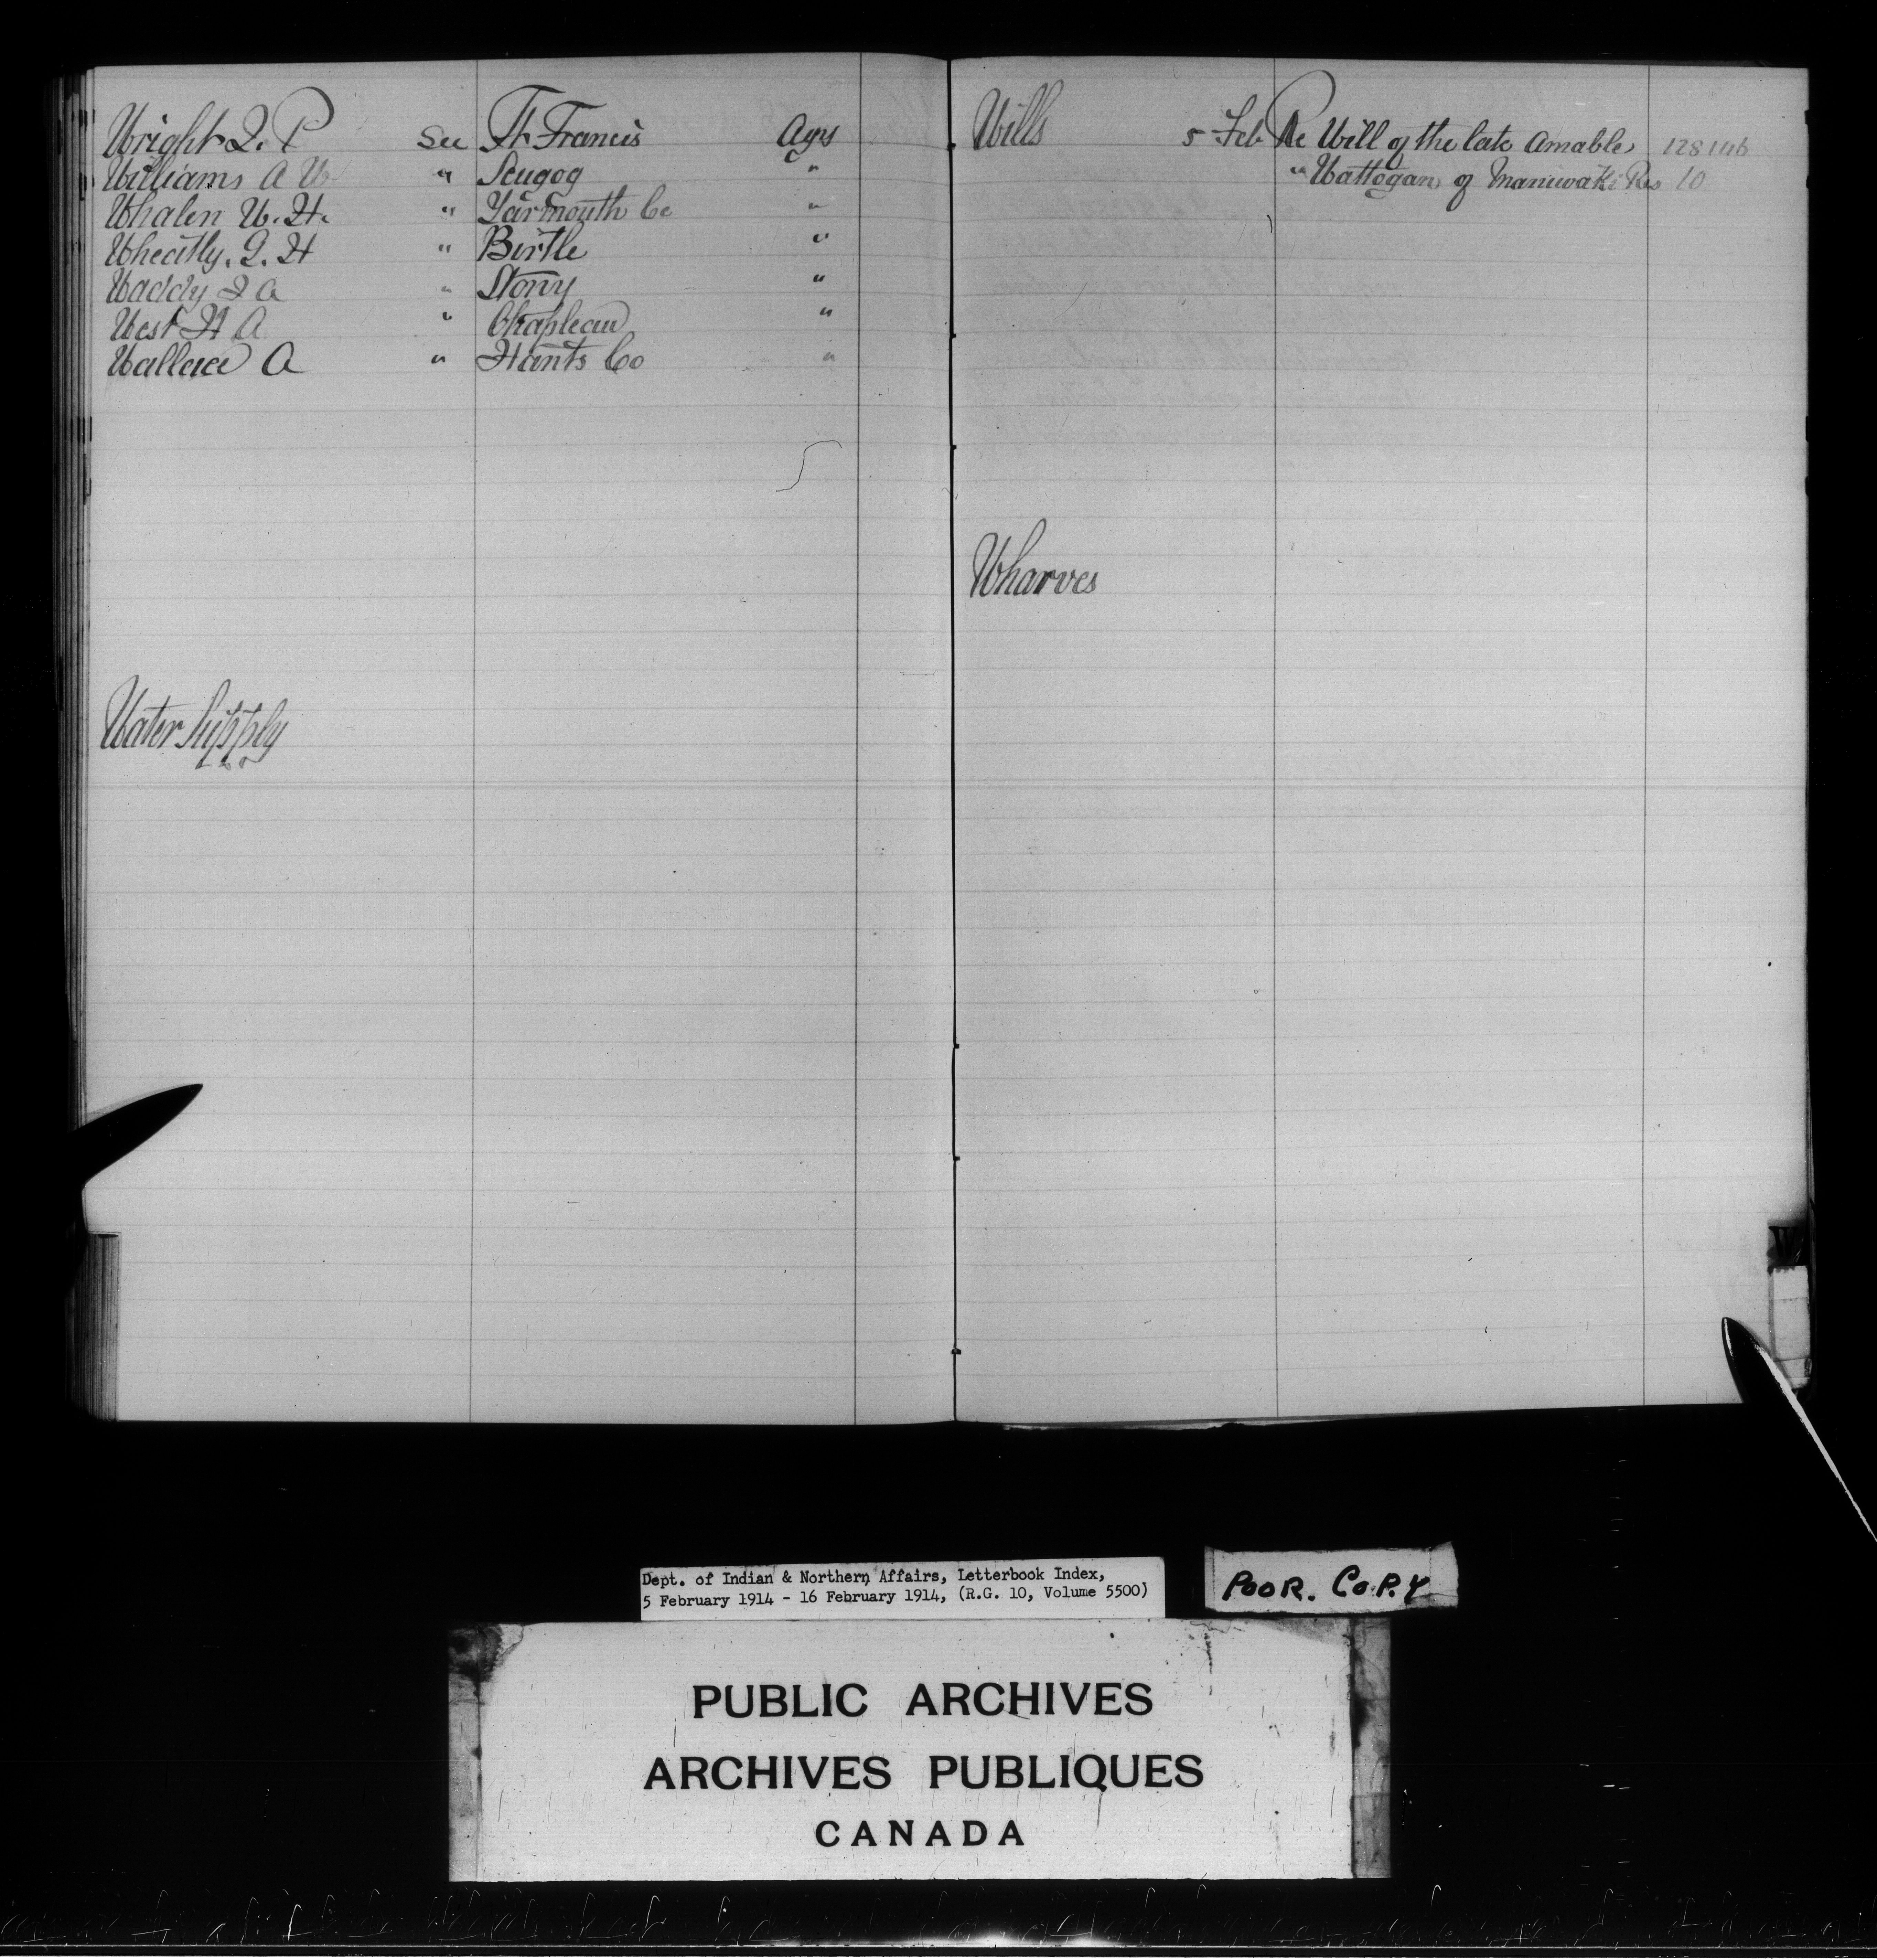 Wright J. P See Ft Francis Agys
Williams A W " Scugog "
Whalen W. H. " Yarmouth Co "
Wheatly. J. H " Birtle "
Waddy J A " Stony "
West H A " Chapleau "
Wallace A " Hants Co "
Water Supply
Wills 5 Feb Re Will of the late Amable 128146
" Wattogan of Maniwaki Res 10
Wharves
W
Dept. of Indian & Northern Affairs, Letterbook Index,
5 February 1914 - 16 February 1914, (R.G. 10, Volume 5500)
POOR. COPY
PUBLIC ARCHIVES
ARCHIVES PUBLIQUES
CANADA